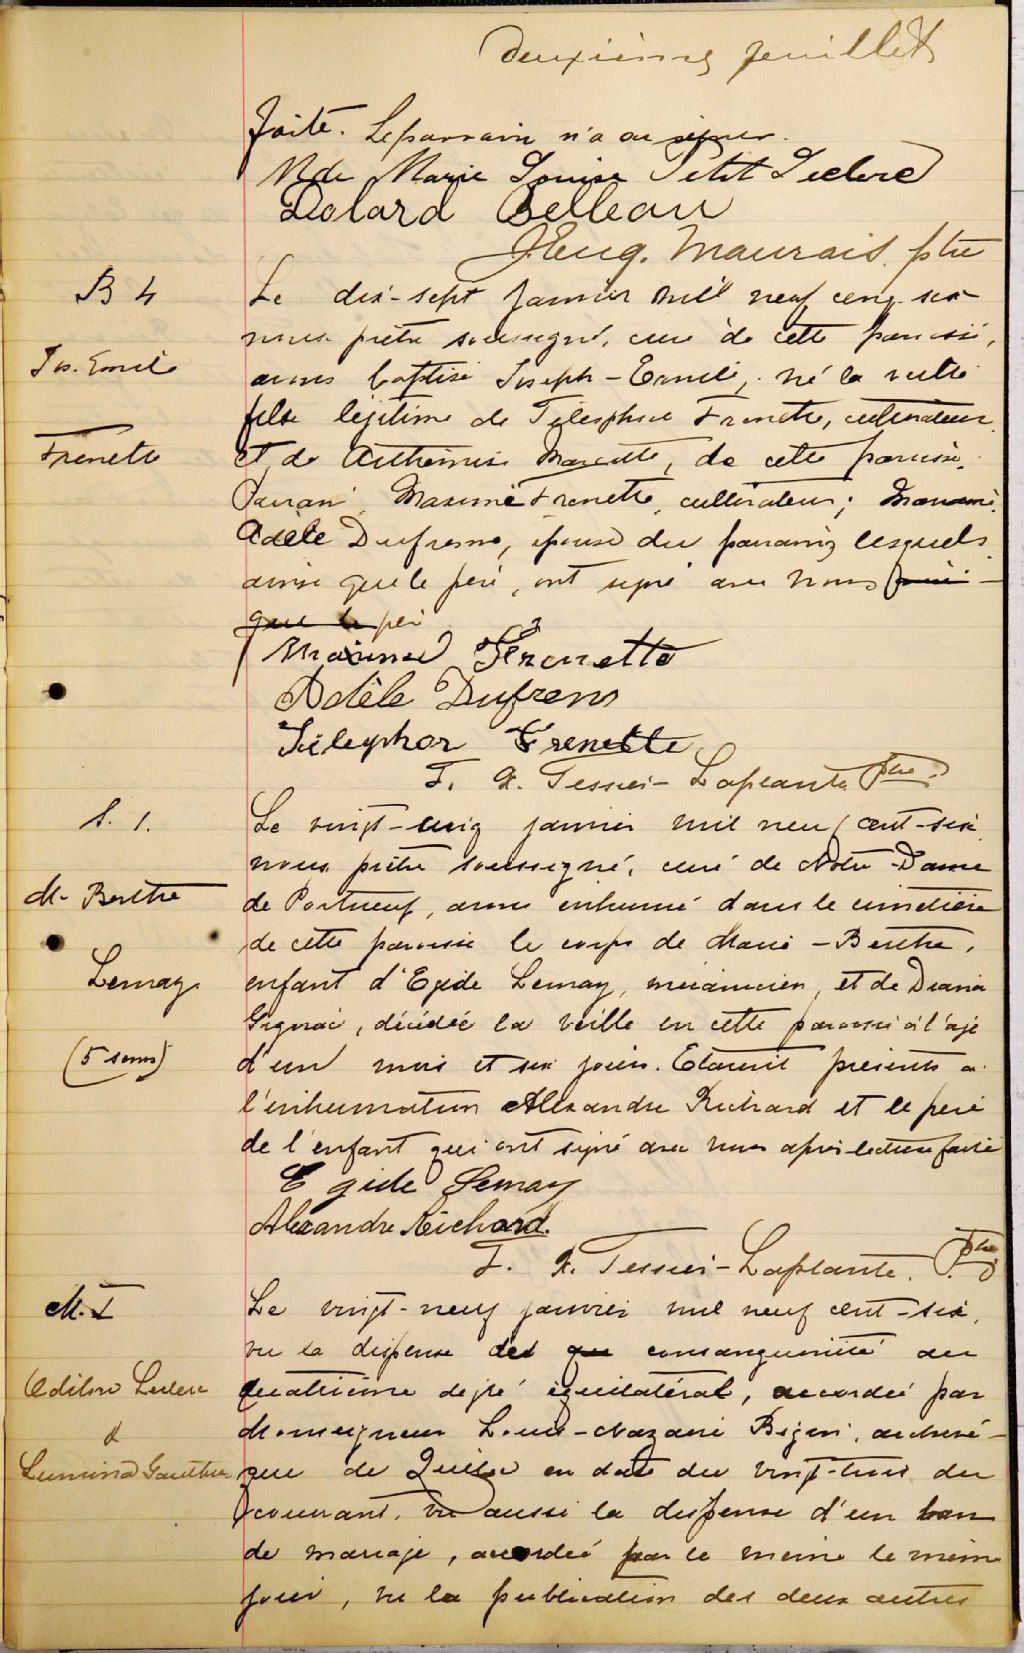 deuxième feuillet
faite. Le parrain n'a su signer.
Mde Marie Louise Petit Leclerc
Dolard Belleau
J Eug. Maurais ptre
B 4
Jos. Emile
Frenette
Le dix-sept janvier mil neuf cent-six
nous prêtre soussigné, curé de cette paroisse,
avons baptisé Joseph-Emile, né la veille
fils légitime de Télesphore Frenette, cultivateur
et de Arthémise Marcotte, de cette paroisse.
Parrain Maxime Frenette, cultivateur; Marraine
Adèle Dufresne, épouse du parrain lesquels
ainsi que le père, ont signé avec nous ainsi
que le père
Maxime Frenette
Adèle Dufrens
Télesphor Frenette
F. X. Tessier-Laplante Ptre
S. 1.
M. Berthe
Lemay
(5 sems)
Le vingt-cinq janvier mil neuf cent-six
nous prêtre soussigné, curé de Notre-Dame
de Portneuf, avons inhumé dans le cimetière
de cette paroisse le corps de Marie-Berthe,
enfant d'Egide Lemay, mécanicien, et de Diana
Gignac, décédée la veille en cette paroisse à l'âge
d'un mois et six jours. Etaient présents à
l'inhumation Alexandre Richard et le père
de l'enfant qui ont signé avec nous après lecture faite
Egide Lemay
Alexandre Richard.
F. X. Tessier-Laplante. Ptre
M. I
Odilon Leclerc
&
Lumina Gauthier
Le vingt-neuf janvier mil neuf cent-six,
vu la dispense de que consanguinité au
quatrième degré équilatéral, accordée par
Monseigneur Louis-Nazaire Bégin, archevê-
que de Québec en date du vingt-trois du
courant, vu aussi la dispense d'un ban
de mariage, accordée par le même le même
jour, vu la publication des deux autres